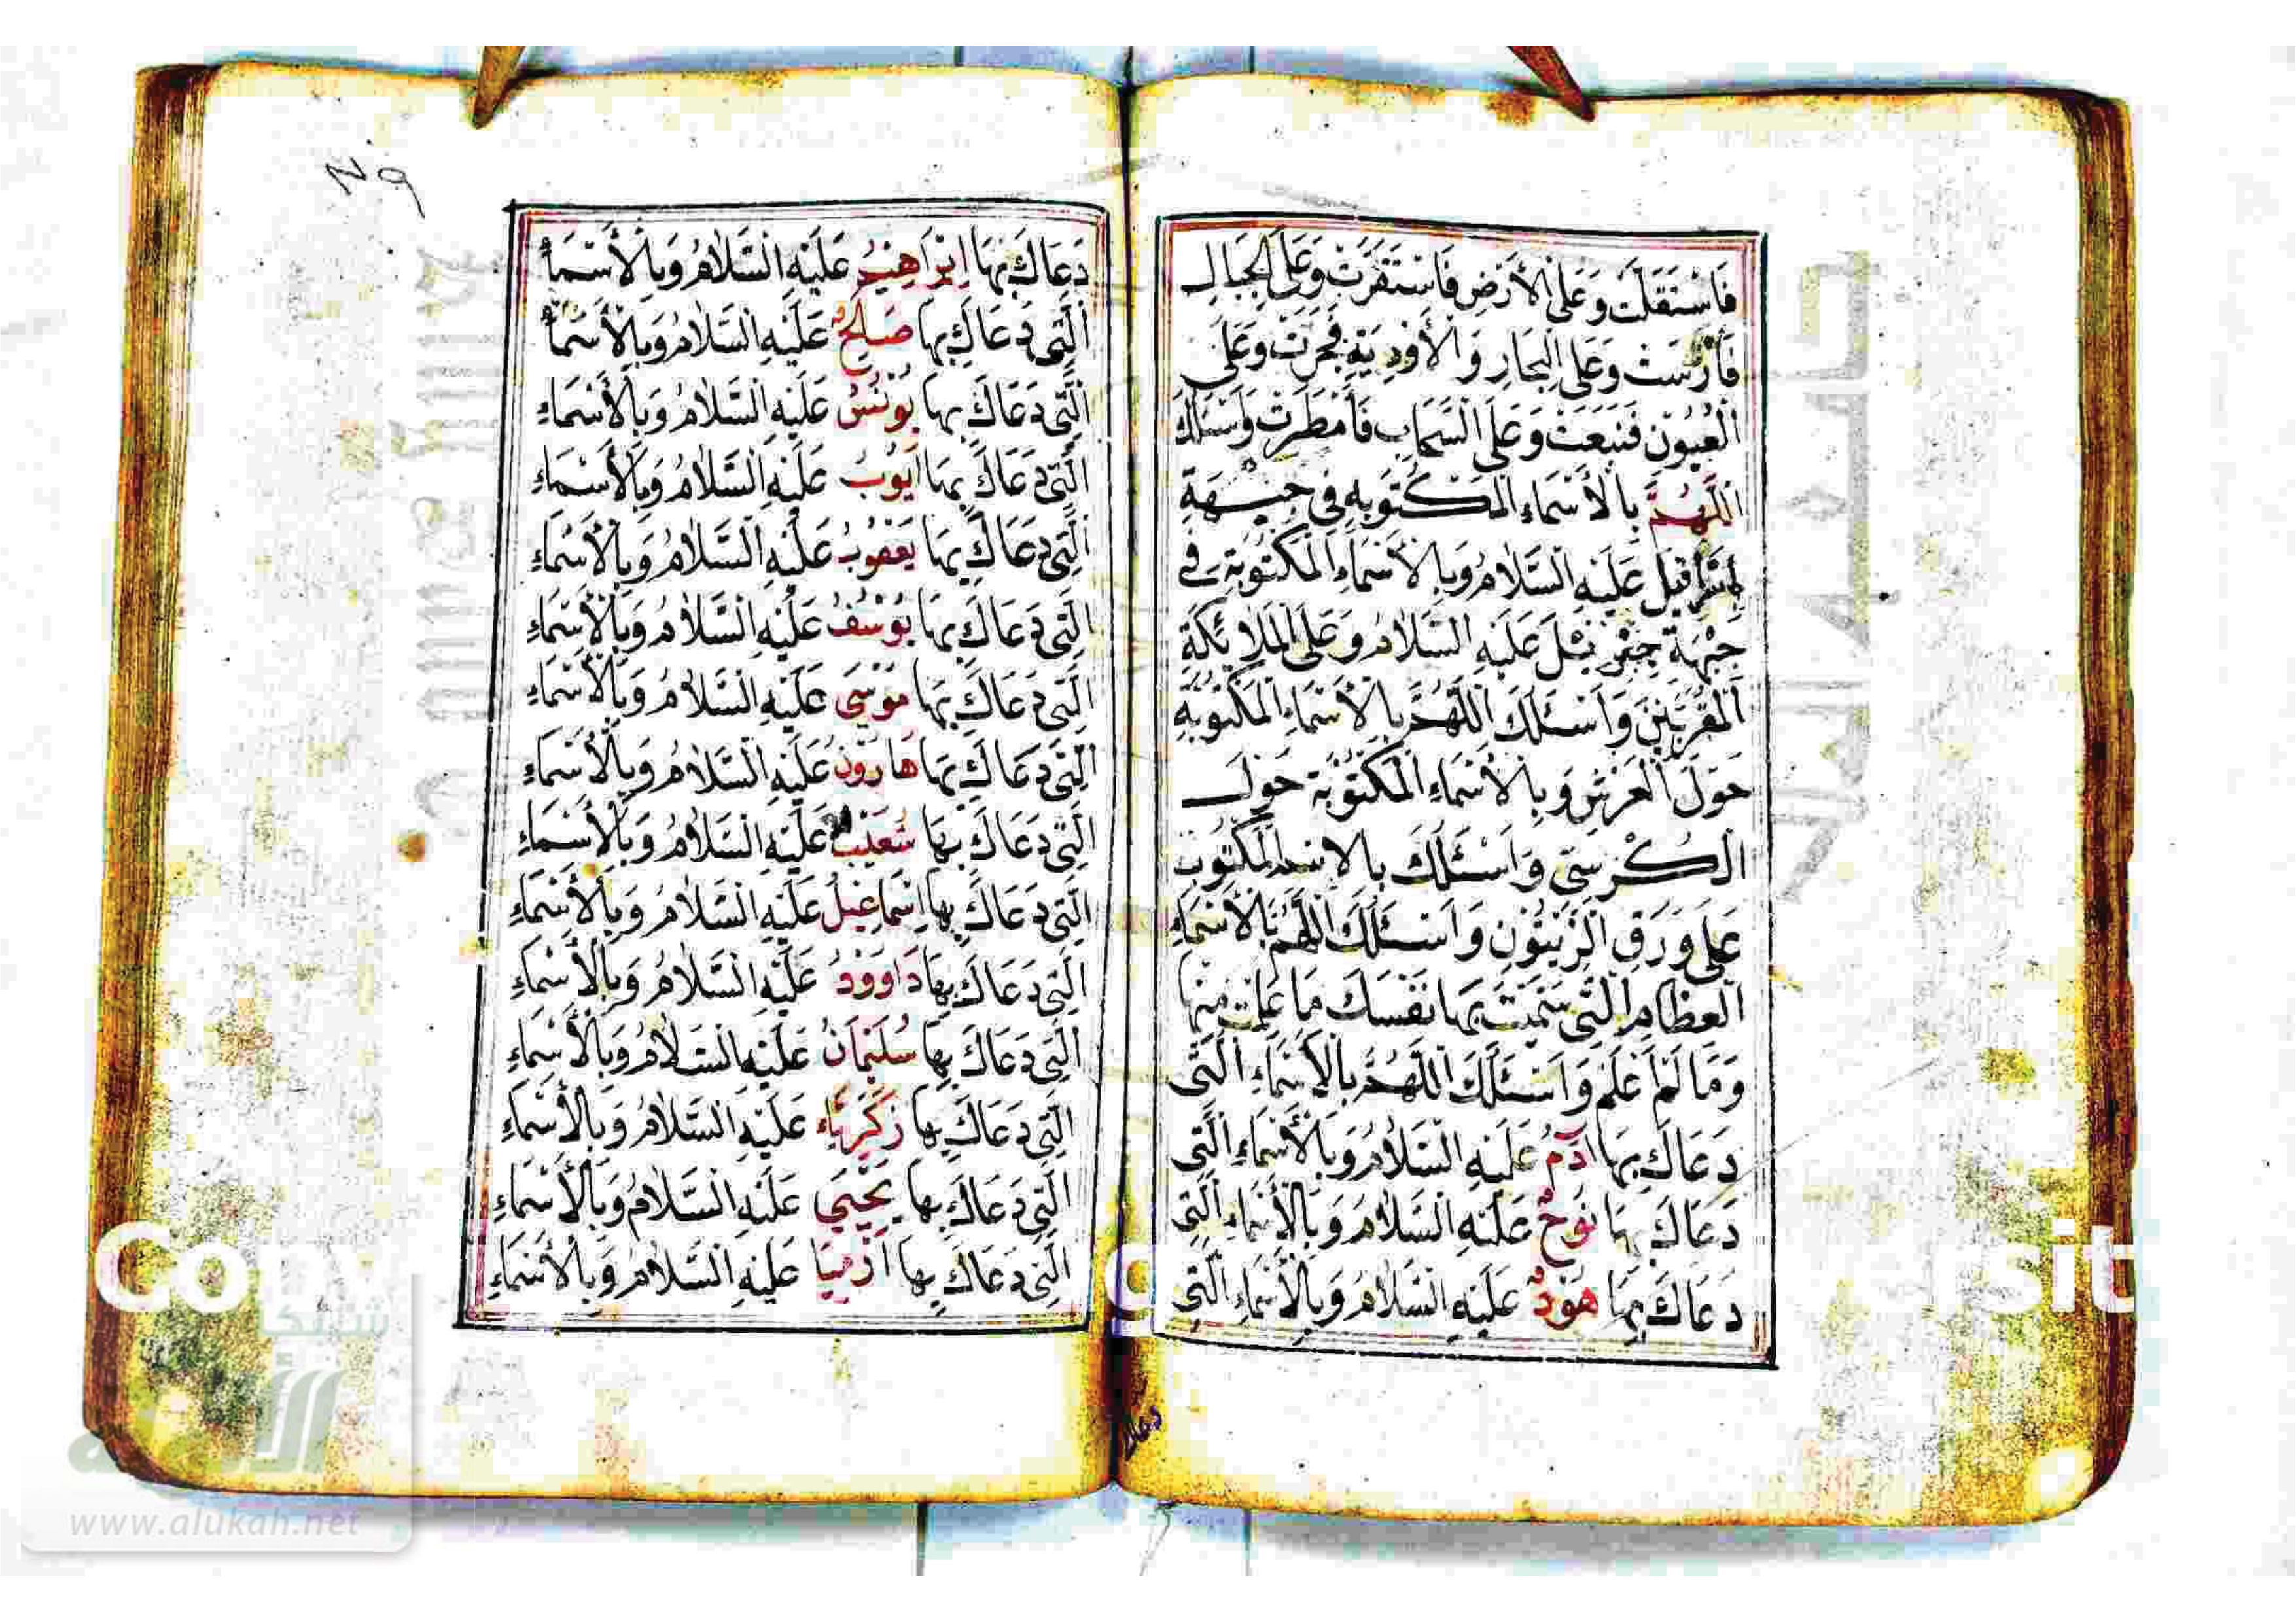 فَاسْتَقَلَّتْ وَعَلَى الْأَرْضِ فَاسْتَقَرَّتْ وَعَلَى الْجِبَالِ
فَأَرْسَتْ وَعَلَى الْبِحَارِ وَالْأَوْدِيَةِ فَجَرَتْ وَعَلَى
الْعُيُونِ فَنَبَعَتْ وَعَلَى السَّحَابِ فَأَمْطَرَتْ وَأَسْئَلُكَ
اللَّهُمَّ بِالْأَسْمَاءِ الْمَكْتُوبَةِ فِي جَبْهَةِ
إِسْرَافِيلَ عَلَيْهِ السَّلَامُ وَبِالْأَسْمَاءِ الْمَكْتُوبَةِ فِي
جَبْهَةِ جِبْرَئِيلَ عَلَيْهِ السَّلَامُ وَعَلَى الْمَلَائِكَةِ
الْمُقَرَّبِينَ وَأَسْئَلُكَ اللَّهُمَّ بِالْأَسْمَاءِ الْمَكْتُوبَةِ
حَوْلَ الْعَرْشِ وَبِالْأَسْمَاءِ الْمَكْتُوبَةِ حَوْلَ
الْكُرْسِيِّ وَأَسْئَلُكَ بِالِاسْمِ الْمَكْتُوبِ
عَلَى وَرَقِ الزَّيْتُونِ وَأَسْئَلُكَ اللَّهُمَّ بِالْأَسْمَاءِ
الْعِظَامِ الَّتِي سَمَّيْتَ بِهَا نَفْسَكَ مَا عَلِمْتُ مِنْهَا
وَمَا لَمْ أَعْلَمْ وَأَسْئَلُكَ اللَّهُمَّ بِالْأَسْمَاءِ الَّتِي
دَعَاكَ بِهَا آدَمُ عَلَيْهِ السَّلَامُ وَبِالْأَسْمَاءِ الَّتِي
دَعَاكَ بِهَا نُوحٌ عَلَيْهِ السَّلَامُ وَبِالْأَسْمَاءِ الَّتِي
دَعَاكَ بِهَا هُودٌ عَلَيْهِ السَّلَامُ وَبِالْأَسْمَاءِ الَّتِي
دعاك
٢٩
دَعَاكَ بِهَا إِبْرَاهِيمُ عَلَيْهِ السَّلَامُ وَبِالْأَسْمَاءِ
الَّتِي دَعَاكَ بِهَا صَالِحٌ عَلَيْهِ السَّلَامُ وَبِالْأَسْمَاءِ
الَّتِي دَعَاكَ بِهَا يُونُسُ عَلَيْهِ السَّلَامُ وَبِالْأَسْمَاءِ
الَّتِي دَعَاكَ بِهَا أَيُّوبُ عَلَيْهِ السَّلَامُ وَبِالْأَسْمَاءِ
الَّتِي دَعَاكَ بِهَا يَعْقُوبُ عَلَيْهِ السَّلَامُ وَبِالْأَسْمَاءِ
الَّتِي دَعَاكَ بِهَا يُوسُفُ عَلَيْهِ السَّلَامُ وَبِالْأَسْمَاءِ
الَّتِي دَعَاكَ بِهَا مُوسَى عَلَيْهِ السَّلَامُ وَبِالْأَسْمَاءِ
الَّتِي دَعَاكَ بِهَا هَارُونُ عَلَيْهِ السَّلَامُ وَبِالْأَسْمَاءِ
الَّتِي دَعَاكَ بِهَا شُعَيْبُ عَلَيْهِ السَّلَامُ وَبِالْأَسْمَاءِ
الَّتِي دَعَاكَ بِهَا إِسْمَاعِيلُ عَلَيْهِ السَّلَامُ وَبِالْأَسْمَاءِ
الَّتِي دَعَاكَ بِهَا دَاوُودُ عَلَيْهِ السَّلَامُ وَبِالْأَسْمَاءِ
الَّتِي دَعَاكَ بِهَا سُلَيْمَانُ عَلَيْهِ السَّلَامُ وَبِالْأَسْمَاءِ
الَّتِي دَعَاكَ بِهَا زَكَرِيَّاءُ عَلَيْهِ السَّلَامُ وَبِالْأَسْمَاءِ
الَّتِي دَعَاكَ بِهَا يَحْيَى عَلَيْهِ السَّلَامُ وَبِالْأَسْمَاءِ
الَّتِي دَعَاكَ بِهَا أَرْمِيَا عَلَيْهِ السَّلَامُ وَبِالْأَسْمَاءِ
شبكة
الألوكة
www.alukah.net